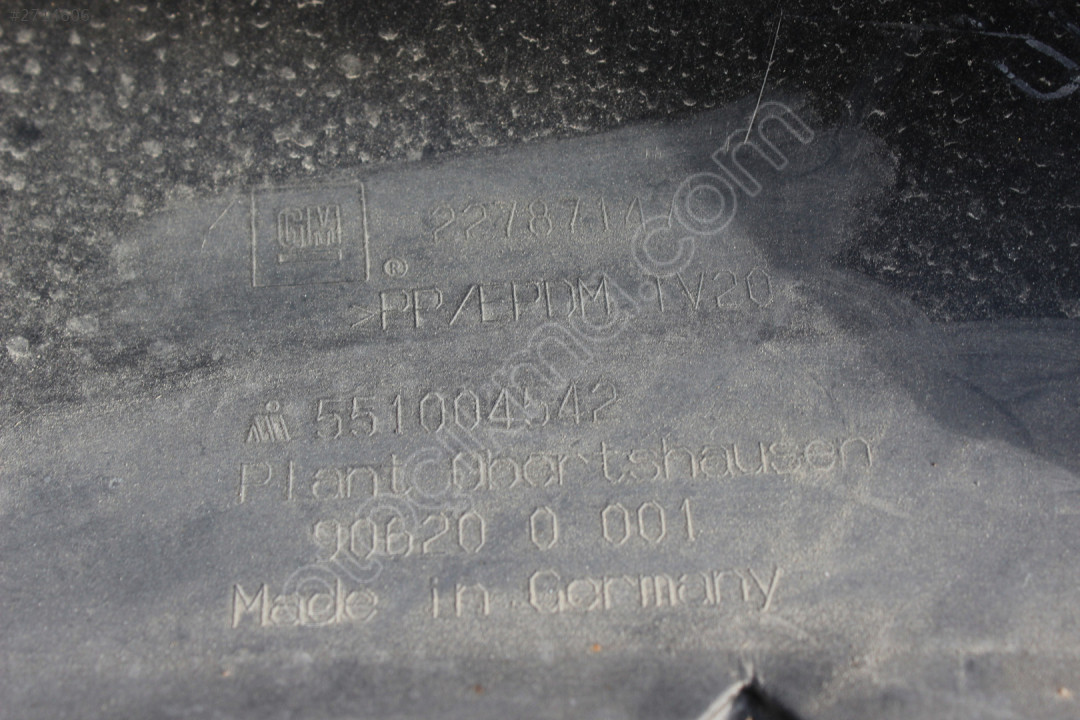 GM 2278714
®
>PP/EPDM TV20
551004542
Plant Obertshausen
90620 0 001
Made in Germany
otocikma.com